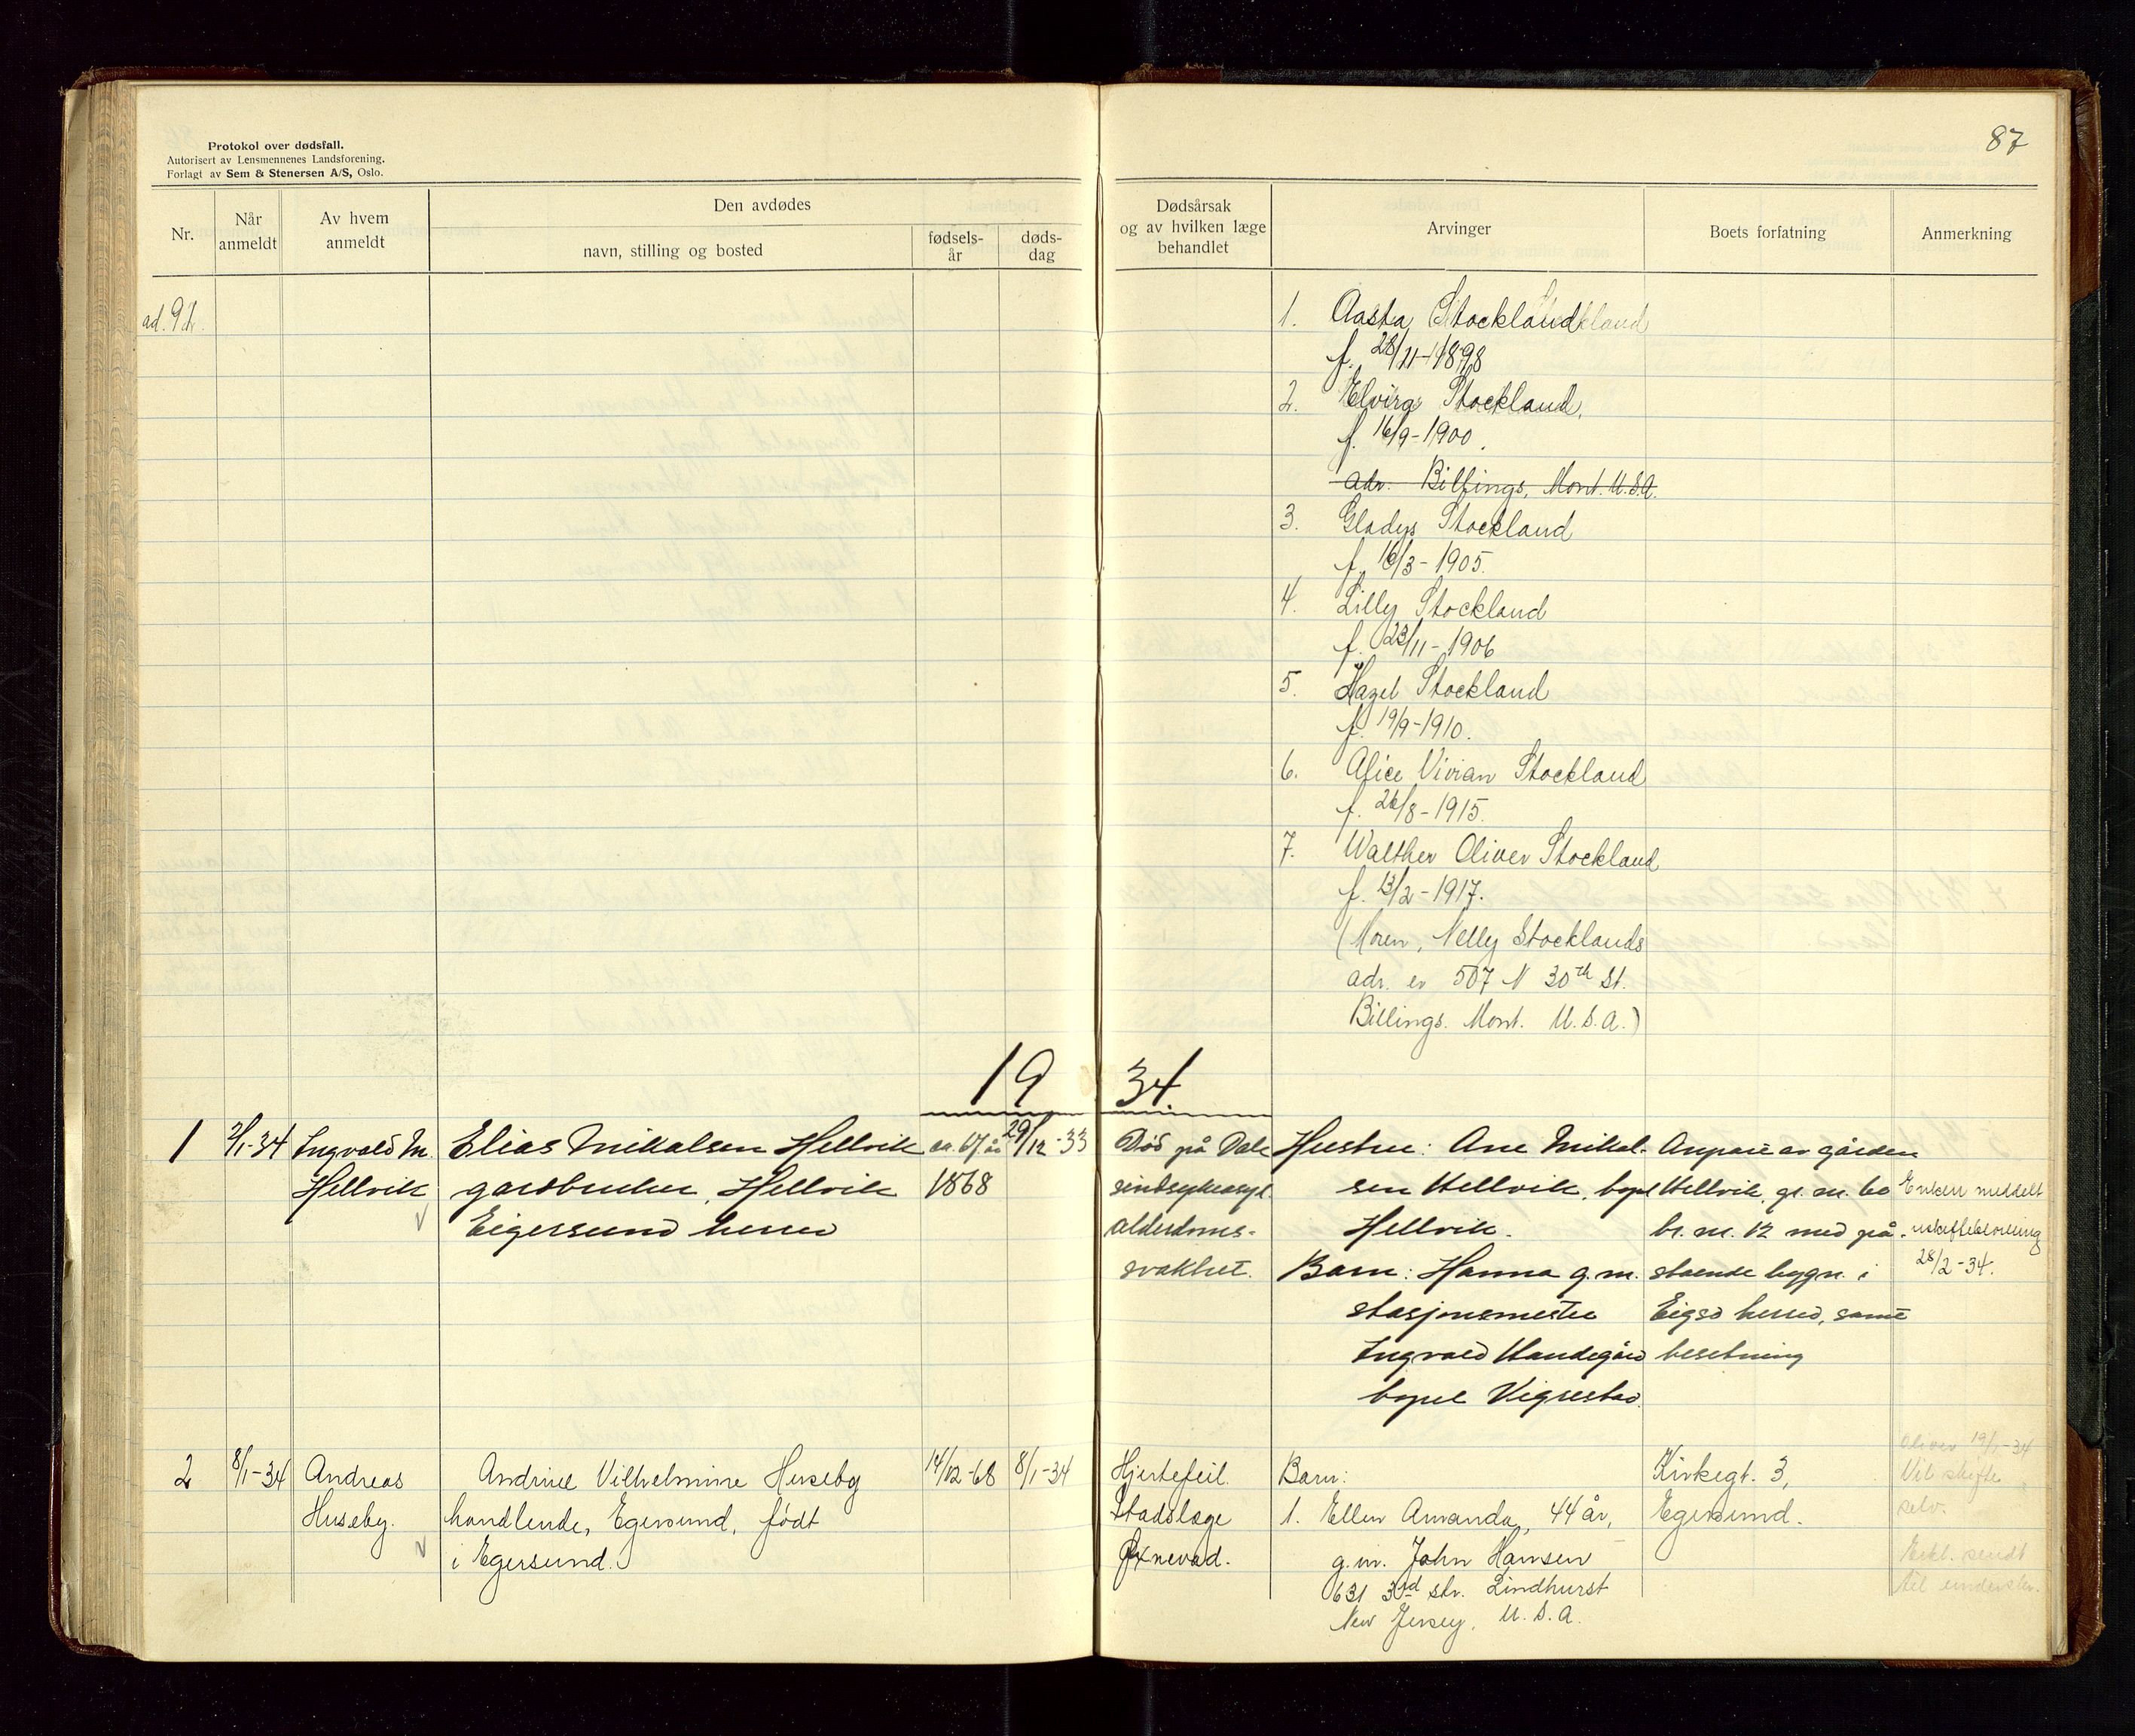 Protokol over dødsfall.
Autorisert av Lensmennenes Landsforening.
Forlagt av Sem & Stenersen A/S, Oslo.
87
Nr.
Når anmeldt
Av hvem anmeldt
Den avdødes
navn, stilling og bosted
fødsels-år
døds-dag
Dødsårsak og av hvilken læge behandlet
Arvinger
Boets forfatning
Anmerkning
ad. 92.
1. Aasta Stockland
f. 28/11-1898
2. Elvira Stockland,
f. 16/9-1900.
adr. Billings, Mont. U.S.A.
3. Gladys Stockland
f. 16/3-1905.
4. Lilly Stockland
f. 23/11-1906
5. Hazel Stockland
f. 19/9-1910.
6. Alice Vivian Stockland
f. 26/8-1915.
7. Walther Oliver Stockland
f. 13/2-1917.
(Moren, Nelly Stocklands
adr. er 507 N 30th St.
Billings. Mont. U.S.A.)
1934.
1
2/1-34
Ingvald M.
Hellvik
Elias Mikalsen Hellvik
gardbruker, Hellvik
Eigersund herred
ca. 67 år
1868
29/12-33
Død på Dale
sindsykeasyl
alderdoms-
svakhet.
Hustru: Ane Mikal-
sen Hellvik, bopel
Hellvik.
Barn: Hanna g.m.
stasjonsmester
Ingvald Haudegård
bopel Vigrestad.
Anpart av gården
Hellvik, gr. nr. 60
br. nr. 12 med på-
stående bygn. i
Eigsd herred, samt
besetning
Enken meddelt
uskiftebevilling
28/2-34.
2
8/1-34
Andreas
Huseby.
Andrine Vilhelmine Huseby
handlende, Egersund, født
i Egersund.
14/12-68
8/1-34
Hjertefeil.
Stadslæge
Øxnevad.
Barn:
1. Ellen Amanda, 44 år,
g.m. John Hansen
631 3rd str. Lindhurst
New Jersey, U.S.A.
Kirkegt. 3,
Egersund.
19/1-34
Vil skifte
selv.
Erkl. sendt
til underskr.